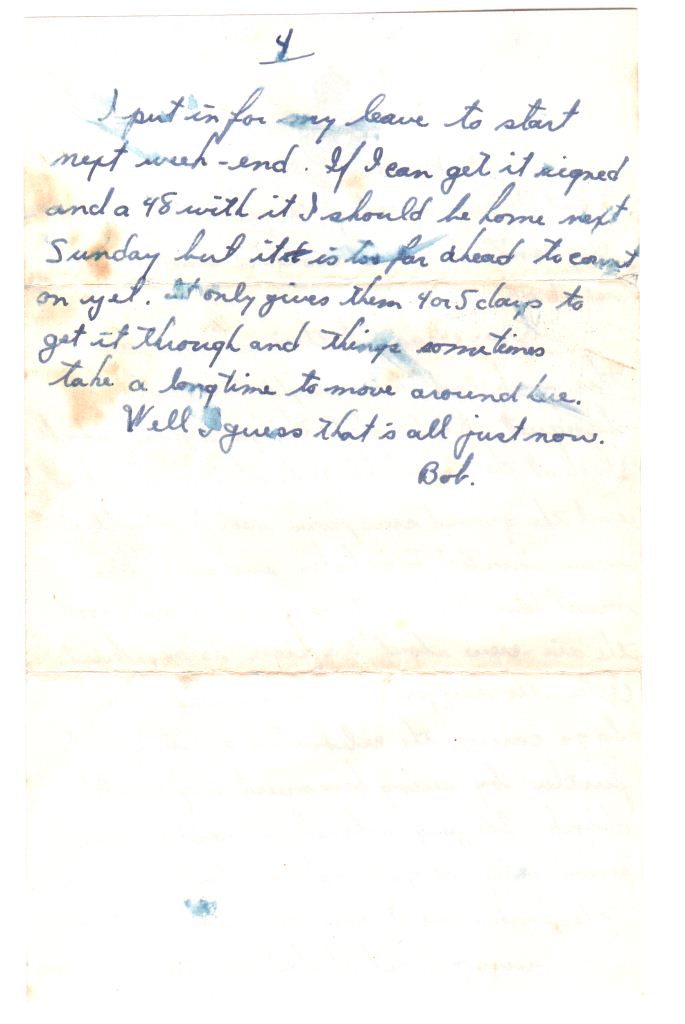 4
I put in for my leave to start
next week-end. If I can get it signed
and a 48 with it I should be home next
Sunday but it is too far ahead to count
on yet. It only gives them 4 or 5 days to
get it through and things sometimes
take a long time to move around here.
Well I guess that's all just now.
Bob.